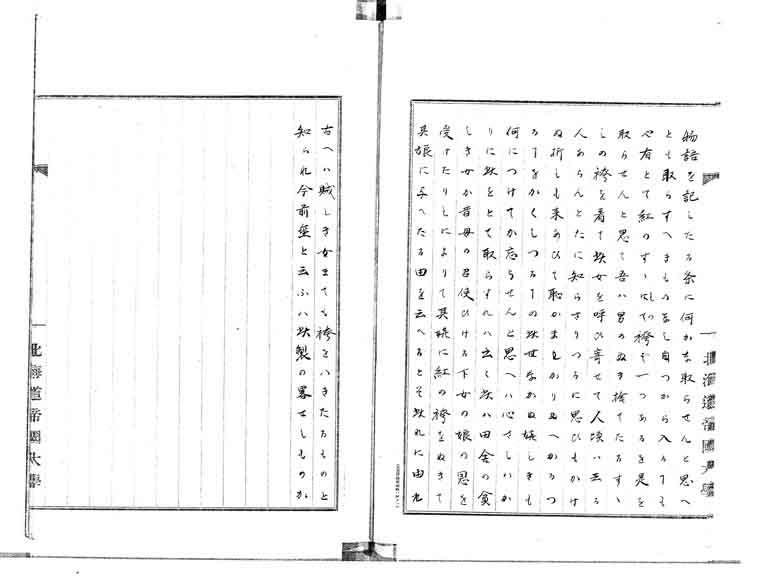 物語を記したる条に何かな取らせんと思へ
とも取らすへきものなし自つから入るも
心有とて紅のすゝはけ袴そ一つあるを是を
取らせんと思て吾ハ男のぬき捨てたるすゝ
しの袴を着て此女を呼ひ寄せて人頃ハ云る
人あらんとたに知らさりつるに思ひもかけ
ぬ折しも来あひて恥かましかりぬへかりつ
る事をかくしつる事の此世ならぬ嬉しきも
何につけてか忘らせんと思へハ心さしハか
りに此をとて取らすれハ云々此ハ田舎の貧
しき女か昔母の召使ひける下女の娘の恩を
受けたりしによりて其娘に紅の袴をぬきて
其娘に与へたる由を云へるとそ此れに由れ
古へハ賎しき女まても袴をハきたるものと
知られ今前垂と云ふハ此製の畧せしものか
北海道帝國大學
北海道帝國大學